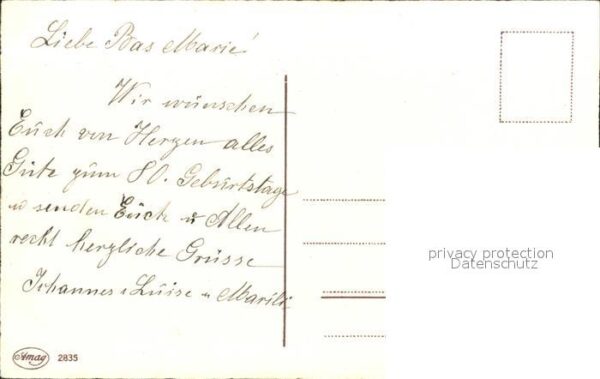 Liebe Bas Marie!
Wir wünschen
Euch von Herzen alles
Gute zum 80. Geburtstage
u senden Euch u Allen
recht herzliche Grüsse
Johannes, Luise u Marili
privacy protection
Datenschutz
Amag 2835